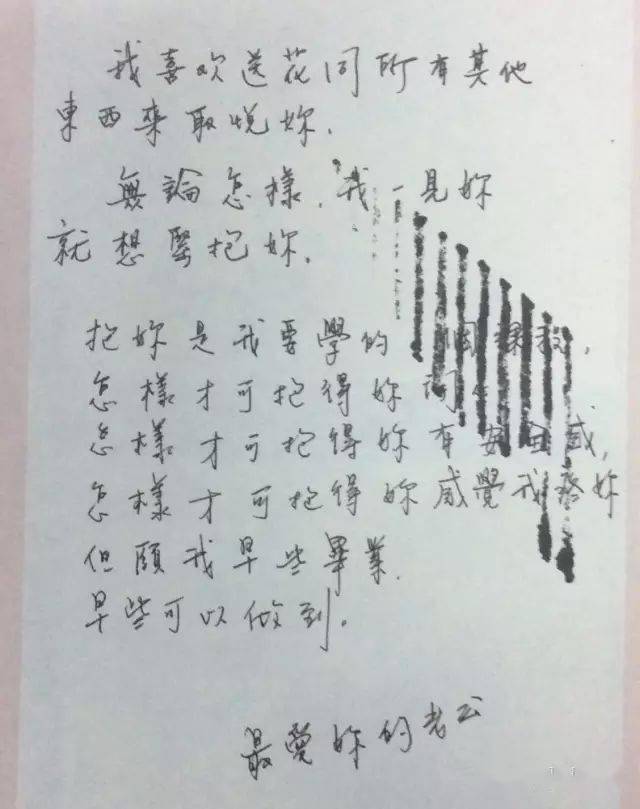 我喜欢送花同所有其他
東西來取悅妳.
無論怎樣,我一見妳
就想緊抱妳.
抱妳是我要學的 個課程,
怎樣才可抱得妳
怎樣才可抱得妳有安全感,
怎樣才可抱得妳感覺我 妳
但願我早些畢業.
早些可以做到.
最愛妳的老公